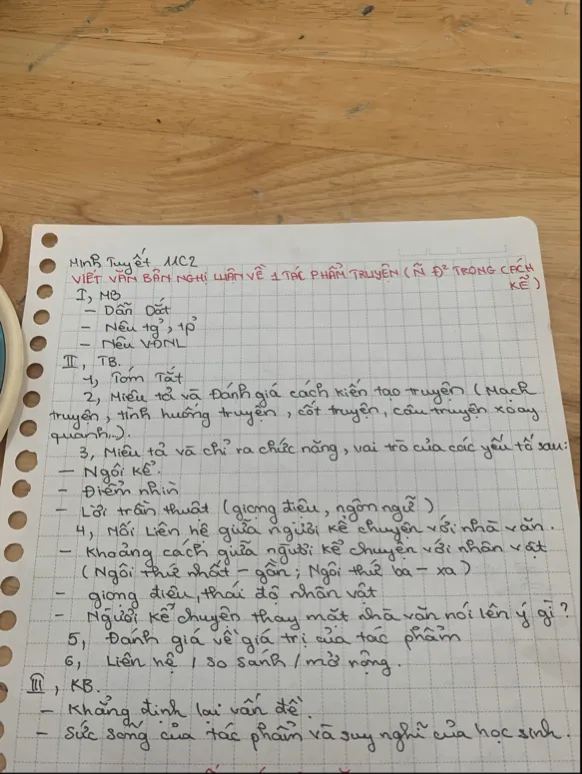 Minh Tuyết 11C2
VIẾT VĂN BẢN NGHỊ LUẬN VỀ 1 TÁC PHẨM TRUYỆN (Ñ Đ² TRONG CÁCH
KỂ)
I, MB
- Dẫn Dắt
- Nêu tg², tp²
- Nêu VĐNL
II, TB.
1, Tóm Tắt
2, Miêu tả và Đánh giá cách kiến tạo truyện (Mạch
truyện, tình huống truyện, cốt truyện, câu truyện xoay
quanh...).
3, Miêu tả và chỉ ra chức năng, vai trò của các yếu tố sau:
- Ngôi kể.
- Điểm nhìn
- Lời trần thuật (giọng điệu, ngôn ngữ)
4, Mối liên hệ giữa người kể chuyện với nhà văn.
- Khoảng cách giữa người kể chuyện với nhân vật
(Ngôi thứ nhất - gần; Ngôi thứ ba - xa)
- giọng điệu, thái độ nhân vật
- Người kể chuyện thay mặt nhà văn nói lên ý gì?
5, Đánh giá về giá trị của tác phẩm
6, Liên hệ / so sánh / mở rộng.
III, KB.
- Khẳng định lại vấn đề.
- Sức sống của tác phẩm và suy nghĩ của học sinh.